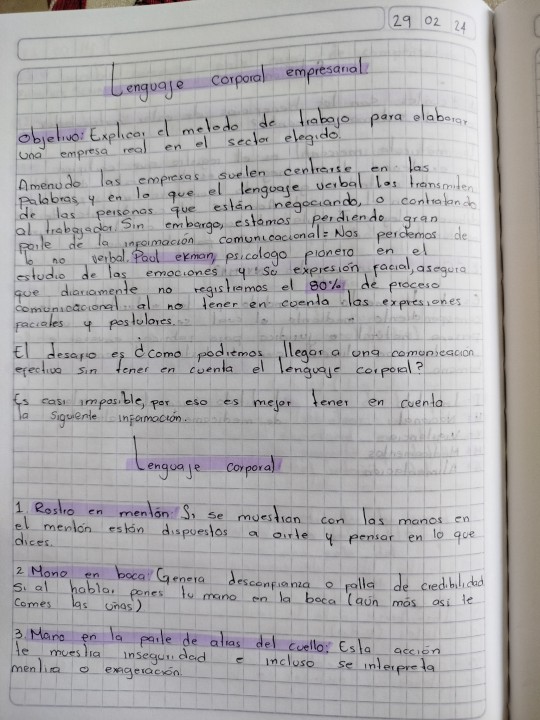 29 02 24
Lenguaje corporal empresarial
Objetivo: Explicar el metodo de trabajo para elaborar
una empresa real en el sector elegido.
Amenudo las empresas suelen centrarse en las
palabras y en lo que el lenguaje verbal los transmiten
de las personas que están negociando, o contratando
al trabajador. Sin embargo, estamos perdiendo gran
parte de la información comunicacional = Nos perdemos de
lo no verbal. Paul ekman, psicologo pionero en el
estudio de las emociones y su expresión facial, asegura
que diariamente no registramos el 80% de proceso
comunicacional al no tener en cuenta las expresiones
faciales y postulares.
El desafio es ¿como podriemos llegar a una comunicación
efectiva sin tener en cuenta el lenguaje corporal?
Es casi imposible, por eso es mejor tener en cuenta
la siguiente información.
Lenguaje corporal
1. Rostro en mentón: Si se muestran con las manos en
el mentón están dispuestos a oirte y pensar en lo que
dices.
2. Mano en boca: Genera desconfianza o falla de credibilidad
si al hablar pones tu mano en la boca (aún más asi te
comes las uñas)
3. Mano en la parte de atras del cuello: Esta acción
te muestra inseguridad e incluso se interpreta
mentira o exageración.